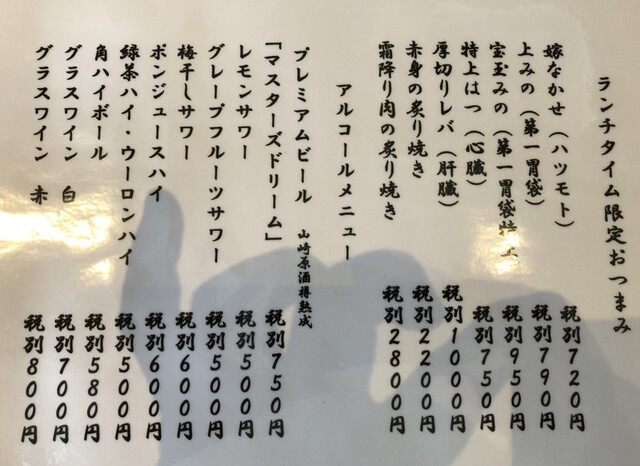 ランチタイム限定おつまみ
嫁なかせ（ハツモト） 税別720円
上みの（第一胃袋） 税別790円
宝玉みの（第一胃袋特上） 税別950円
特上はつ（心臓） 税別750円
厚切りレバ（肝臓） 税別1000円
赤身の炙り焼き 税別2200円
霜降り肉の炙り焼き 税別2800円
アルコールメニュー
プレミアムビール 山崎原酒樽熟成
「マスターズドリーム」 税別750円
レモンサワー 税別500円
グレープフルーツサワー 税別500円
梅干しサワー 税別600円
ポンジュースハイ 税別600円
緑茶ハイ・ウーロンハイ 税別500円
角ハイボール 税別580円
グラスワイン 白 税別700円
グラスワイン 赤 税別800円